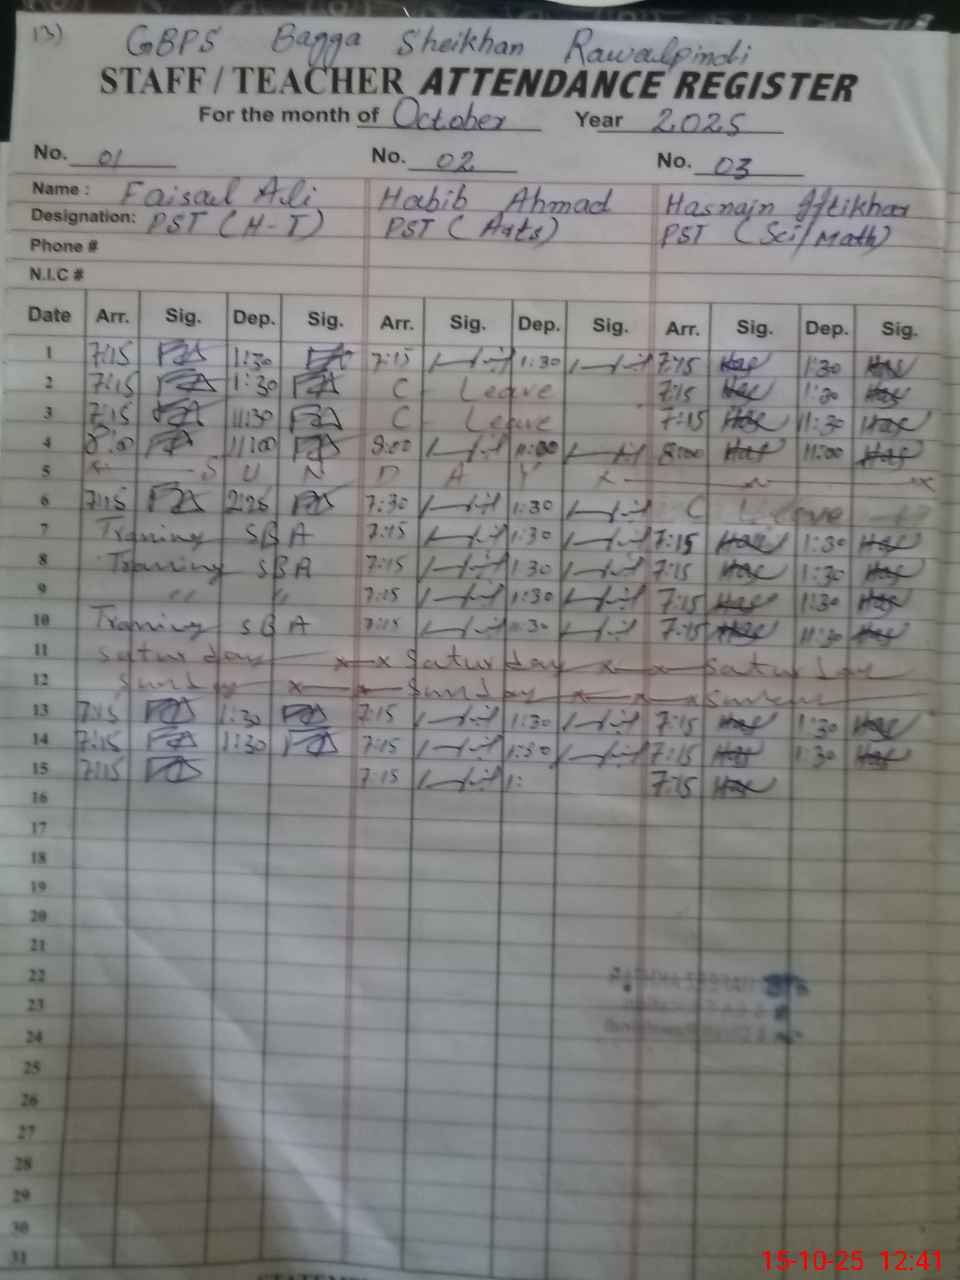 13)
GBPS Bagga Sheikhan Rawalpindi
STAFF / TEACHER ATTENDANCE REGISTER
For the month of October Year 2025
No. 01 No. 02 No. 03
Name : Faisal Ali Habib Ahmad Hasnain Iftikhar
Designation: PST (H-T) PST (Arts) PST (Sci/Math)
Phone #
N.I.C #
Date Arr. Sig. Dep. Sig. Arr. Sig. Dep. Sig. Arr. Sig. Dep. Sig.
1 7:15 1:30 7:15 1:30 7:15 1:30
2 7:15 1:30 C Leave 7:15 1:30
3 7:15 11:30 C Leave 7:15 11:30
4 8:00 11:00 8:00 11:00 8:00 11:00
5 x S U N D A Y x x
6 7:15 2:25 7:30 1:30 C Leave
7 Training SBA 7:15 1:30 7:15 1:30
8 Training SBA 7:15 1:30 7:15 1:30
9 " " 7:15 1:30 7:15 1:30
10 Training SBA 7:15 11:30 7:15 11:30
11 Saturday x x Saturday x x Saturday
12 Sunday x x Sunday x x Sunday
13 7:15 1:30 7:15 1:30 7:15 1:30
14 7:15 1:30 7:15 1:30 7:15 1:30
15 7:15 7:15 1: 7:15
16
17
18
19
20
21
22
23
24
25
26
27
28
29
30
31
15-10-25 12:41